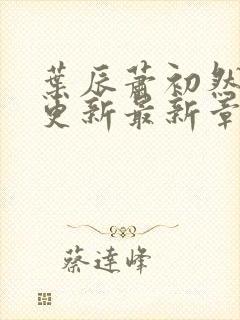 葉辰蕭初然
更新最新章
蔡達峰